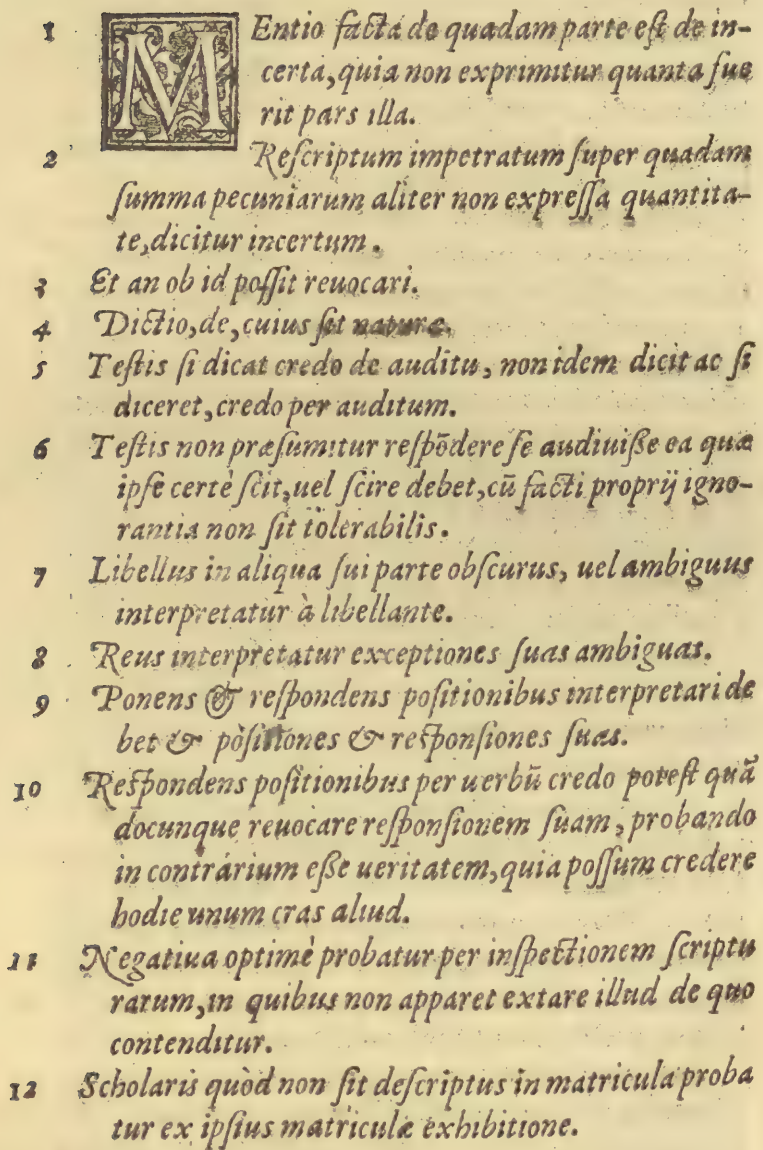 1 MEntio facta de quadam parte est de in-
certa, quia non exprimitur quanta fue
rit pars illa.
2 Rescriptum impetratum super quadam
summa pecuniarum aliter non expressa quantita-
te, dicitur incertum.
3 Et an ob id possit reuocari.
4 Dictio, de, cuius sit naturæ.
5 Testis si dicat credo de auditu, non idem dicit ac si
diceret, credo per auditum.
6 Testis non præsumitur respōdere se audiuisse ea quæ
ipse certè scit, uel scire debet, cū facti proprij igno-
rantia non sit tolerabilis.
7 Libellus in aliqua sui parte obscurus, uel ambiguus
interpretatur à libellante.
8 Reus interpretatur exceptiones suas ambiguas.
9 Ponens & respondens positionibus interpretari de
bet & positiones & responsiones suas.
10 Respondens positionibus per uerbū credo potest quā
docunque reuocare responsionem suam, probando
in contrarium esse ueritatem, quia possum credere
hodie unum cras aliud.
11 Negatiua optimè probatur per inspectionem scriptu
rarum, in quibus non apparet extare illud de quo
contenditur.
12 Scholaris quòd non sit descriptus in matricula proba
tur ex ipsius matriculæ exhibitione.